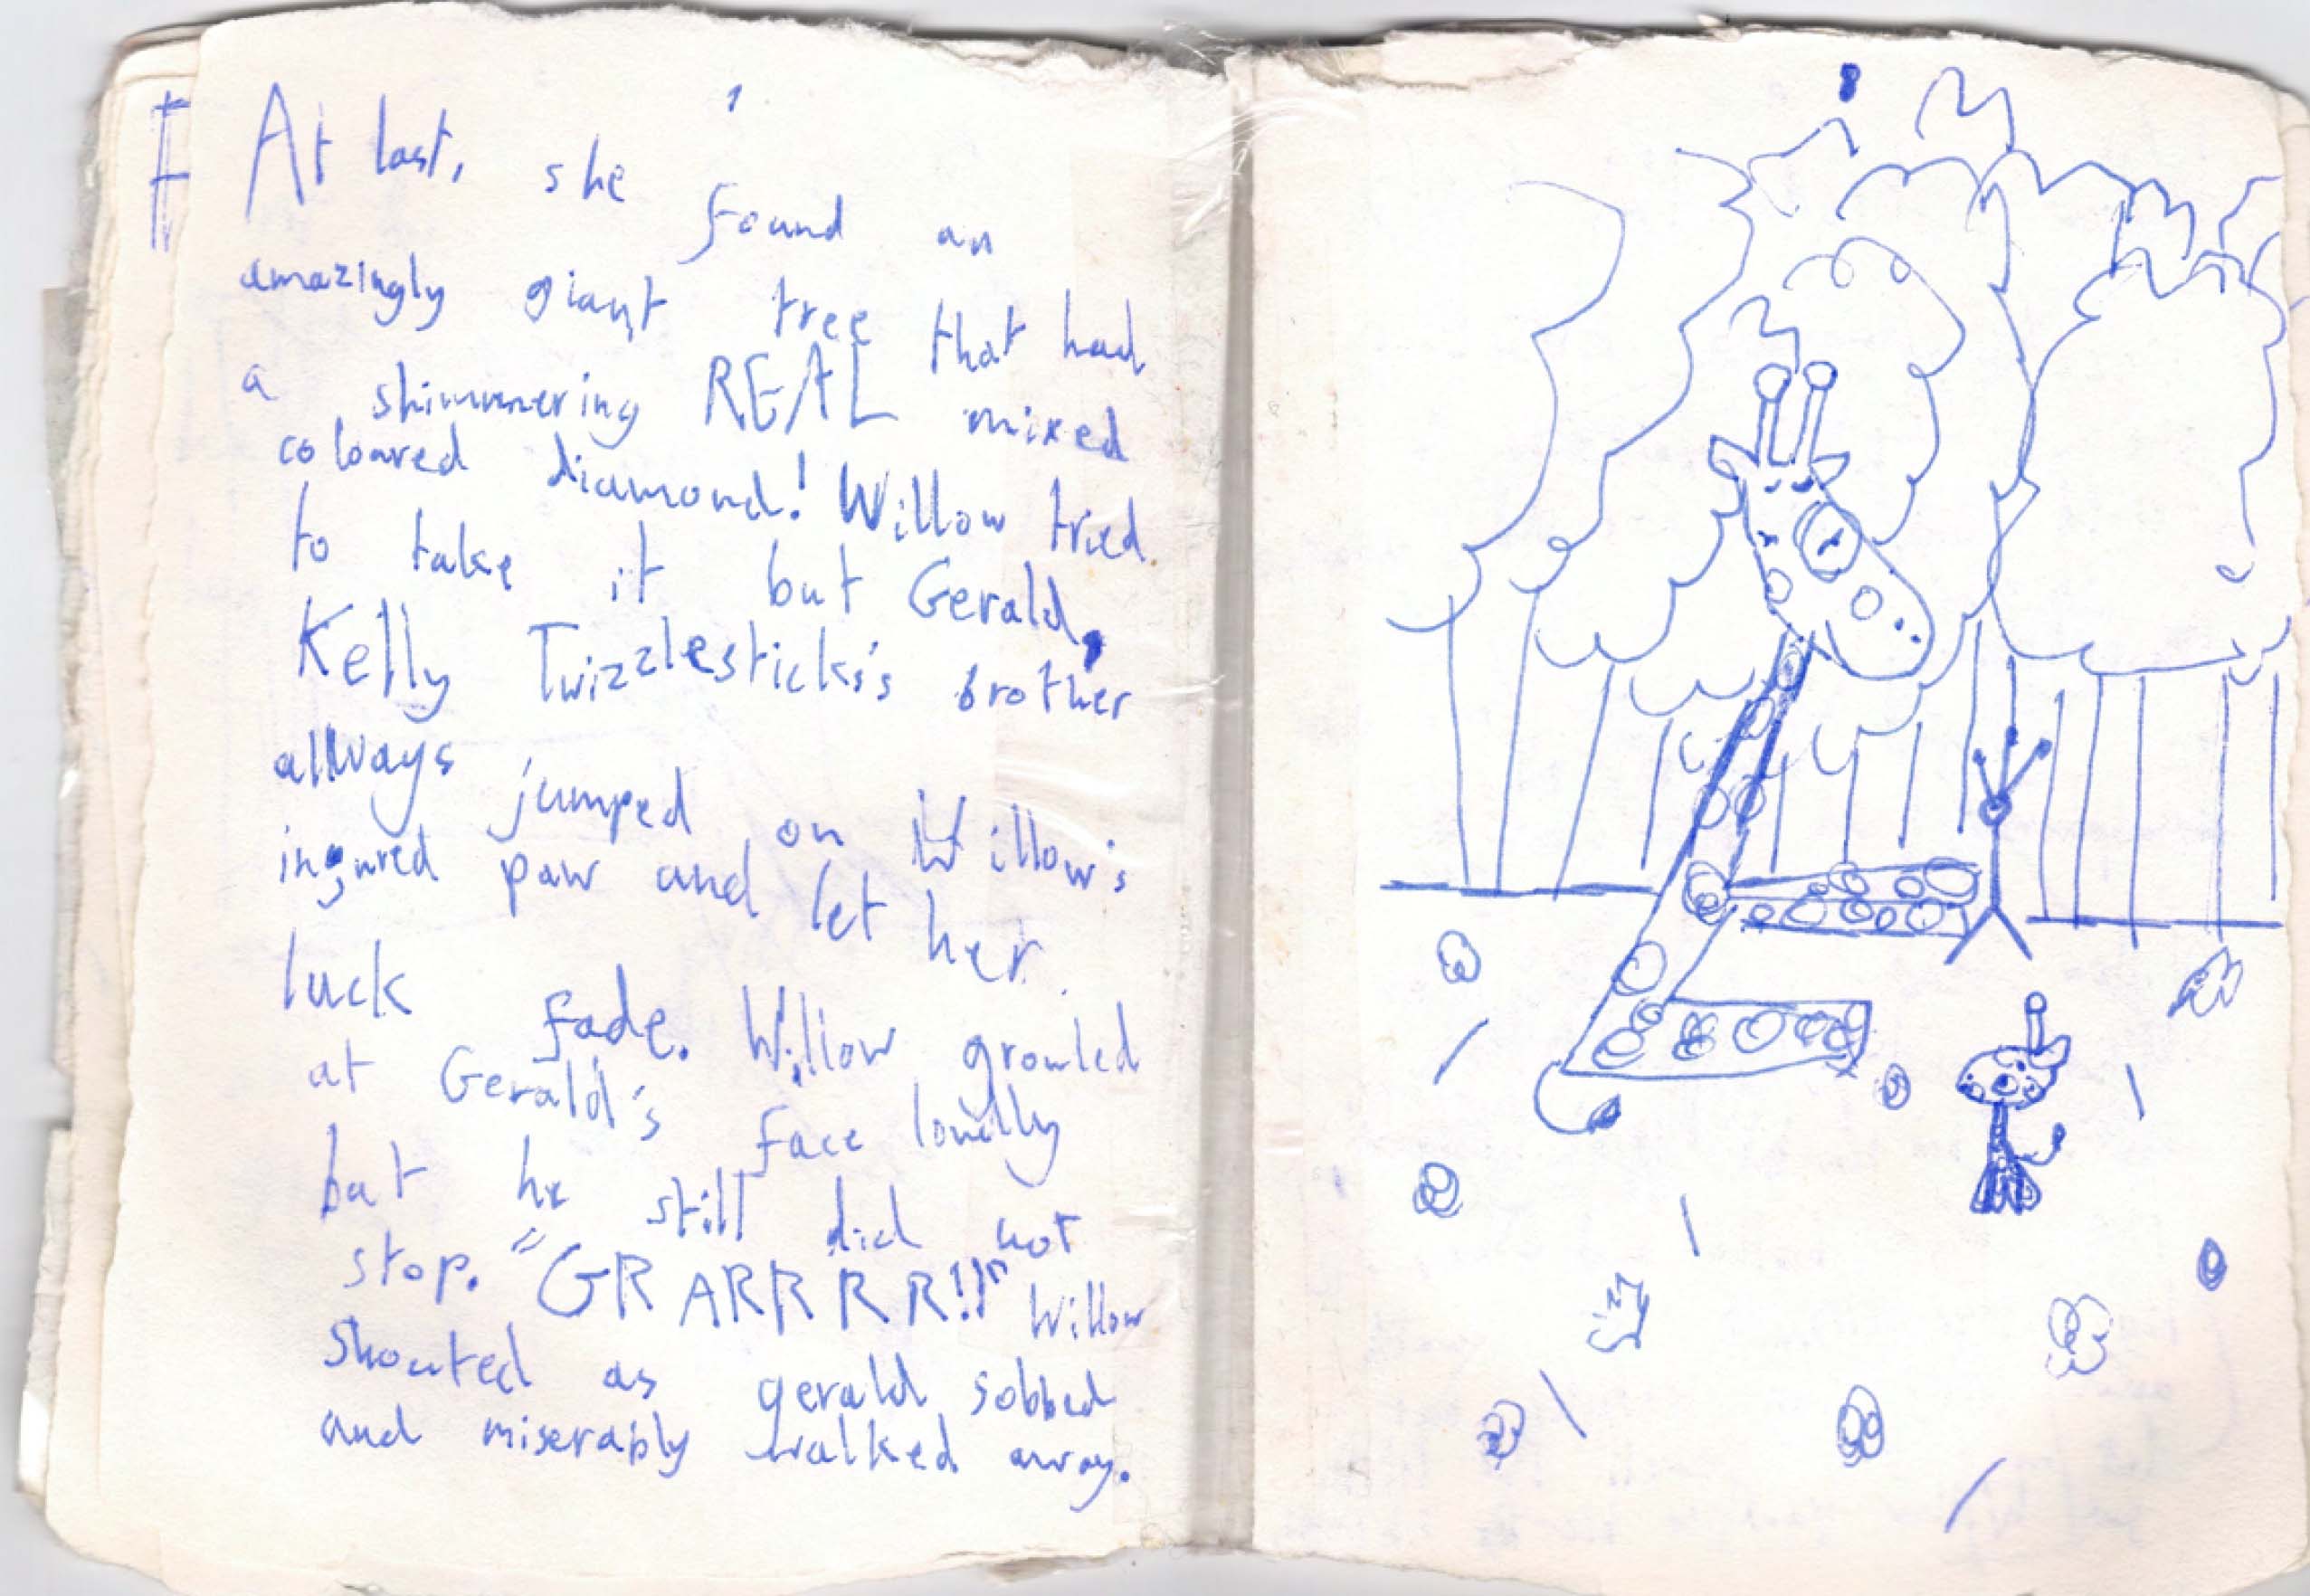 At last, she found an
amazingly giant tree that had
a shimmering REAL mixed
coloured diamond! Willow tried
to take it but Gerald,
Kelly Twizzlesticks's brother
allways jumped on Willow's
ingured paw and let her
luck fade. Willow growled
at Gerald's face loudly
but he still did not
stop. "GRARRRR!!" Willow
shouted as gerald sobbed
and miserably walked away.